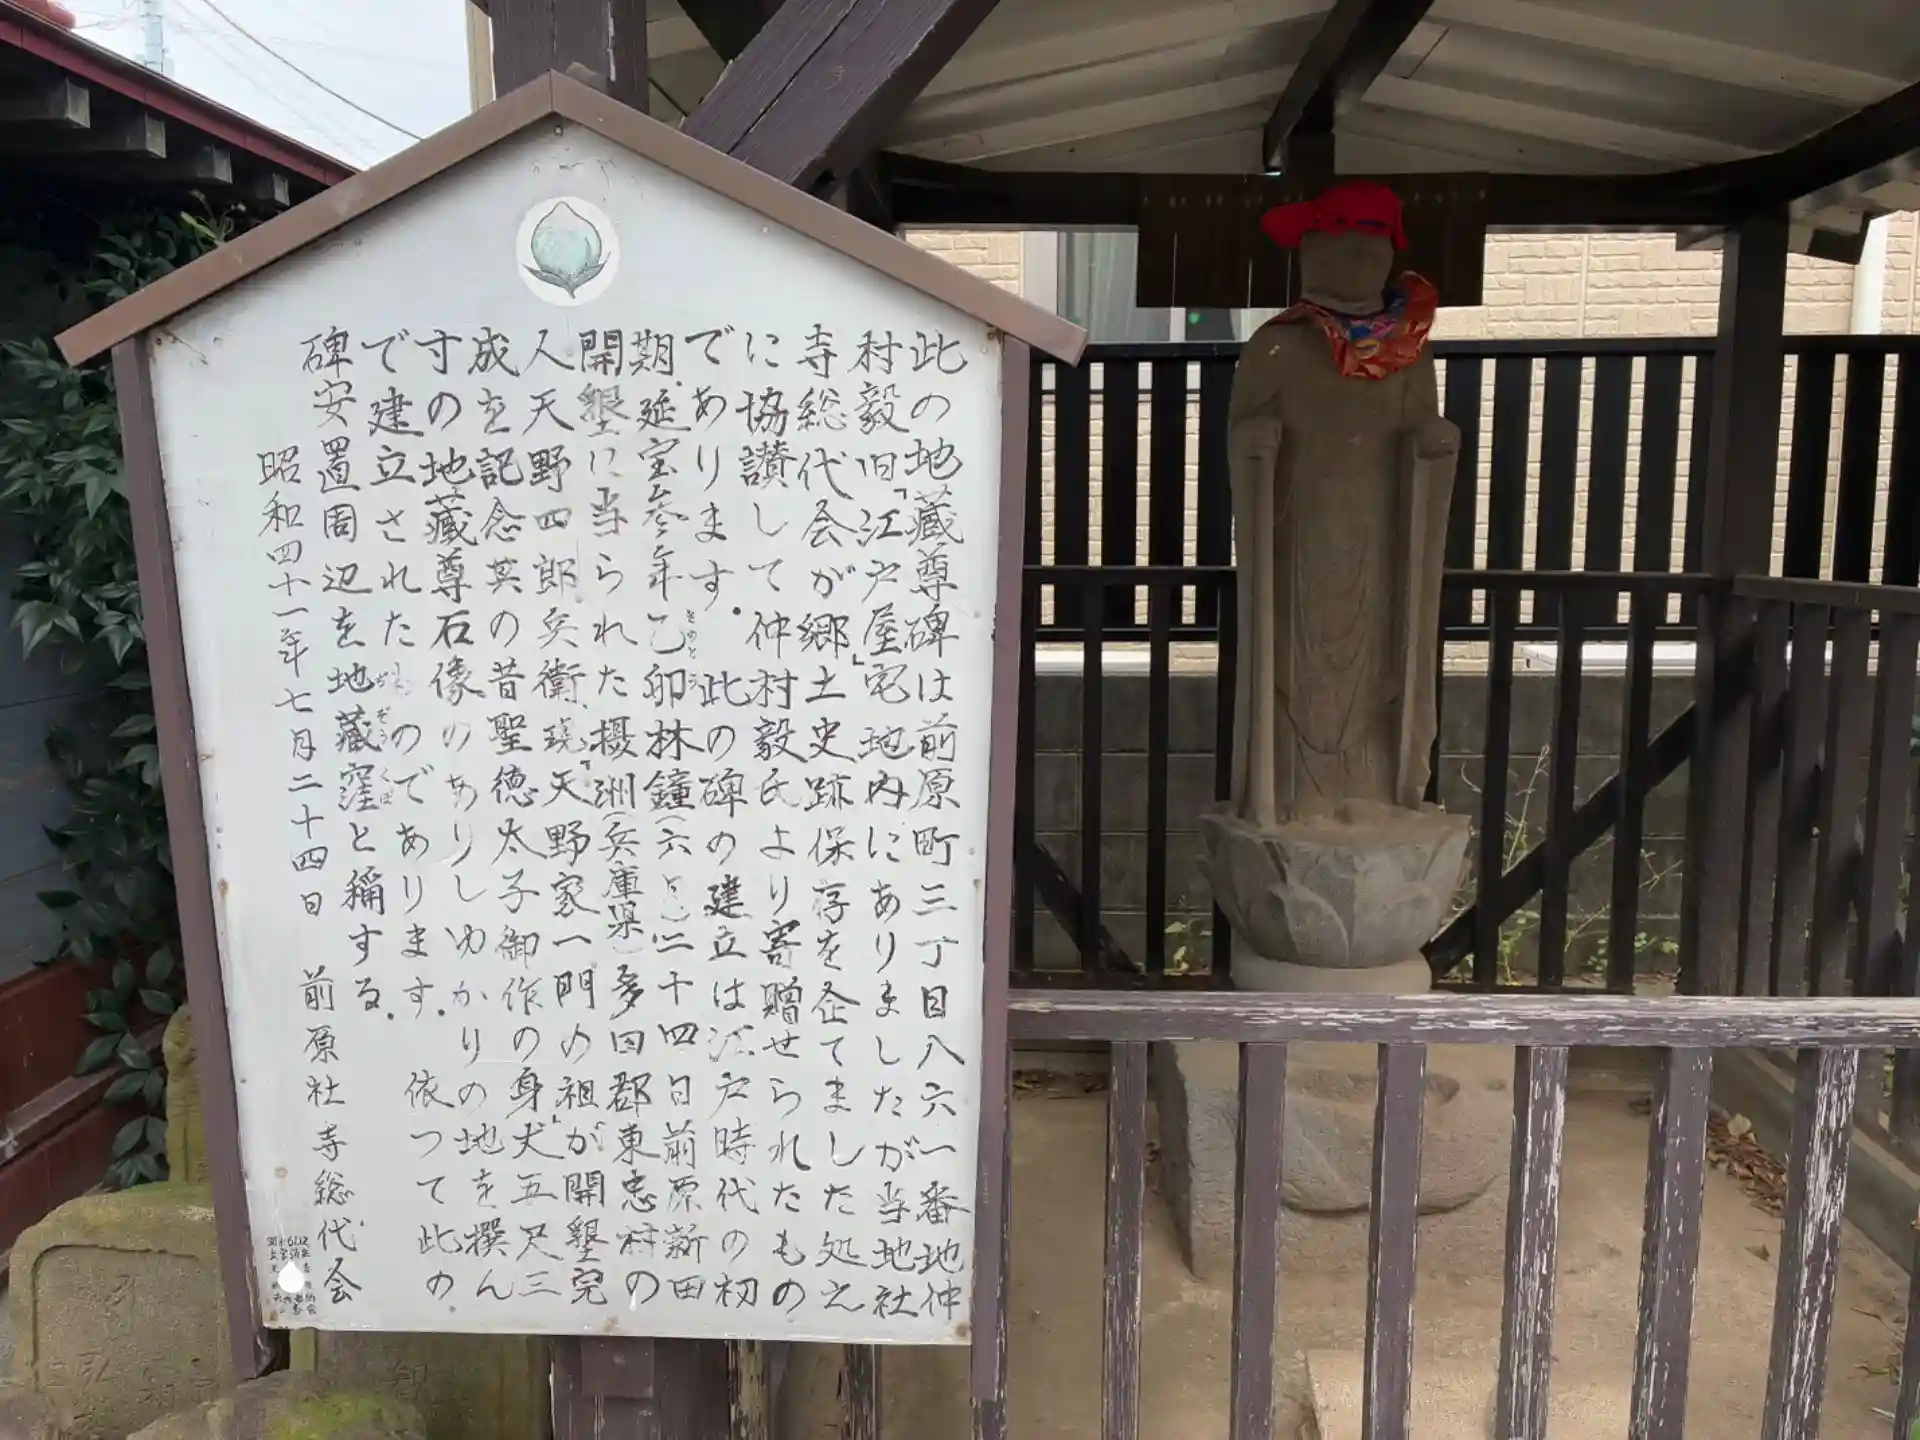 此の地藏尊碑は前原町三丁目八六一番地仲
村毅旧「江戸屋」宅地内にありましたが当地社
寺総代会が郷土史跡保存を企てました処え
に協讃して仲村毅氏より寄贈せられたもの
であります。此の碑の建立は江戸時代の初
期延宝参年乙卯林鐘(六月)二十四日前原新田
きのとう
開墾に当られた摂洲(兵庫県)多田郡東忠村の
人天野四郎兵衛「天野家一門の祖」が開墾完
成を記念其の昔聖徳太子御作の身丈五尺三
寸の地藏尊石像のありしゆかりの地を撰ん
で建立されたのであります。依つて此の
碑安置周辺を地藏窪と稱する。
ぢぞうくぼ
昭和四十一年七月二十四日 前原社寺総代会